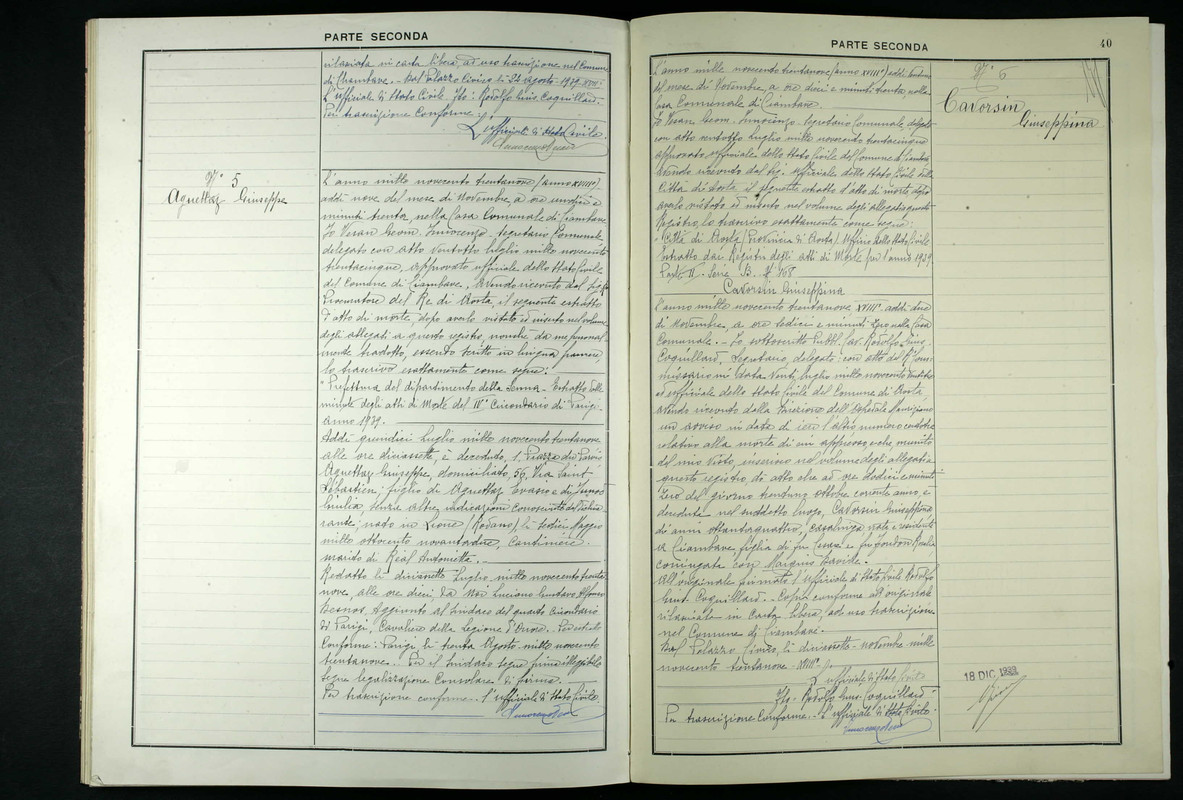 PARTE SECONDA
rilasciata in carta libera, ad uso trascrizione nel Comune
di Chambave. - Dal Palazzo Civico li 24 agosto - 1939 - XVII°
L'ufficiale di Stato Civile Fto: Rodolfo Gius. Coquillard -
Per trascrizione Conforme
L'ufficiale di Stato Civile
N° 5
Agnettaz Giuseppe
L'anno mille novecento trentanove (anno XVIII°)
addì nove del mese di Novembre, a ore undici e
minuti trenta, nella Casa Comunale di Ciambave
Io Vesan Geom. Innocenzo, Segretario Comunale
delegato con atto Ventotto luglio mille novecento
trentacinque, approvato ufficiale dello Stato Civile
del Comune di Ciambave, Avendo ricevuto dal Sig.
Procuratore del Re di Aosta, il seguente estratto
d'atto di morte, dopo averlo vistato ed inserto nel volume
degli allegati a questo registro, nonché da me personal
mente tradotto, essendo scritto in lingua francese
lo trascrivo esattamente come segue:
"Prefettura del dipartimento della Senna - Estratto dalle
minute degli atti di Morte del IV° Circondario di Parigi.
Anno 1939.
Addì quindici Luglio mille novecento trentanove
alle ore diciassette, è deceduto, 1, Piazza du Parvis
Agnettaz Giuseppe, domiciliato, 56, Via Saint
Sébastien; figlio di Agnettaz Evasio e di
Giulia, senza altre indicazioni conosciute dal dichia
rante; nato in Lione (Rodano) li sedici Maggio
mille ottocento novantadue, Cantiniere.
marito di Réal Antonietta.
Redatto li diciassette Luglio mille novecento trenta
nove, alle ore dieci da Noi Luciano Gustavo Alfonso
Besnos, Aggiunto al Sindaco del quarto Circondario
di Parigi, Cavaliere della Legione d'Onore. - Per estratto
Conforme: Parigi li trenta Agosto mille novecento
trentanove. - Per il Sindaco segue firma illeggibile
segue legalizzazione Consolare di firma.
Per trascrizione conforme - l'ufficiale di Stato Civile
PARTE SECONDA
40
L'anno mille novecento trentanove (anno XVIII°) addì
del mese di Novembre, a ore dieci e minuti trenta, nella
Casa Comunale di Ciambave.
Io Vesan Geom. Innocenzo - Segretario Comunale delegato
con atto ventotto luglio mille novecento trentacinque
approvato ufficiale dello Stato Civile del Comune di Ciambave
Avendo ricevuto dal Sig. ufficiale dello Stato Civile della
Città di Aosta, il seguente estratto d'atto di morte dopo
averlo vistato ed inserto nel volume degli allegati a questo
Registro, lo trascrivo esattamente come segue:
"Città di Aosta (Provincia di Aosta) Ufficio dello Stato Civile
Estratto dai Registri degli atti di Morte per l'anno 1939
Parte II - Serie B. N° 168
Cavorsin Giuseppina
L'anno mille novecento trentanove XVIII° addì due
di Novembre, a ore sedici e minuti Zero nella Casa
Comunale. - Io sottoscritto Cav. Rodolfo Gius.
Coquillard, Segretario, delegato con atto del R° Com
missario in data Venti luglio mille novecento
ufficiale dello Stato Civile del Comune di Aosta,
avendo ricevuto dalla Direzione dell'Ospedale Mauriziano
un avviso in data di ieri l'altro numero
relativo alla morte di cui appresso e che, munito
del mio Visto, inserisco nel volume degli allegati a
questo registro, do atto che ad ore dodici e minuti
Zero del giorno trentuno ottobre corrente anno, è
deceduta nel suddetto luogo, Cavorsin Giuseppina
di anni ottantaquattro, casalinga nata e residente
a Ciambave figlia di fu Cesare e fu Gordon Rosalia
coniugata con Davide.
All'originale firmato l'Ufficiale di Stato Civile Rodolfo
Gius. Coquillard. - Copia conforme all'originale
rilasciata in carta libera, ad uso trascrizione
nel Comune di Ciambave.
Dal Palazzo Civico, li diciassette - novembre mille
novecento trentanove - XVIII°
L'ufficiale di Stato Civile
Fto - Rodolfo Gius. Coquillard -
Per trascrizione Conforme. - L'ufficiale di Stato Civile
N° 6
Cavorsin
Giuseppina
18 DIC 1939